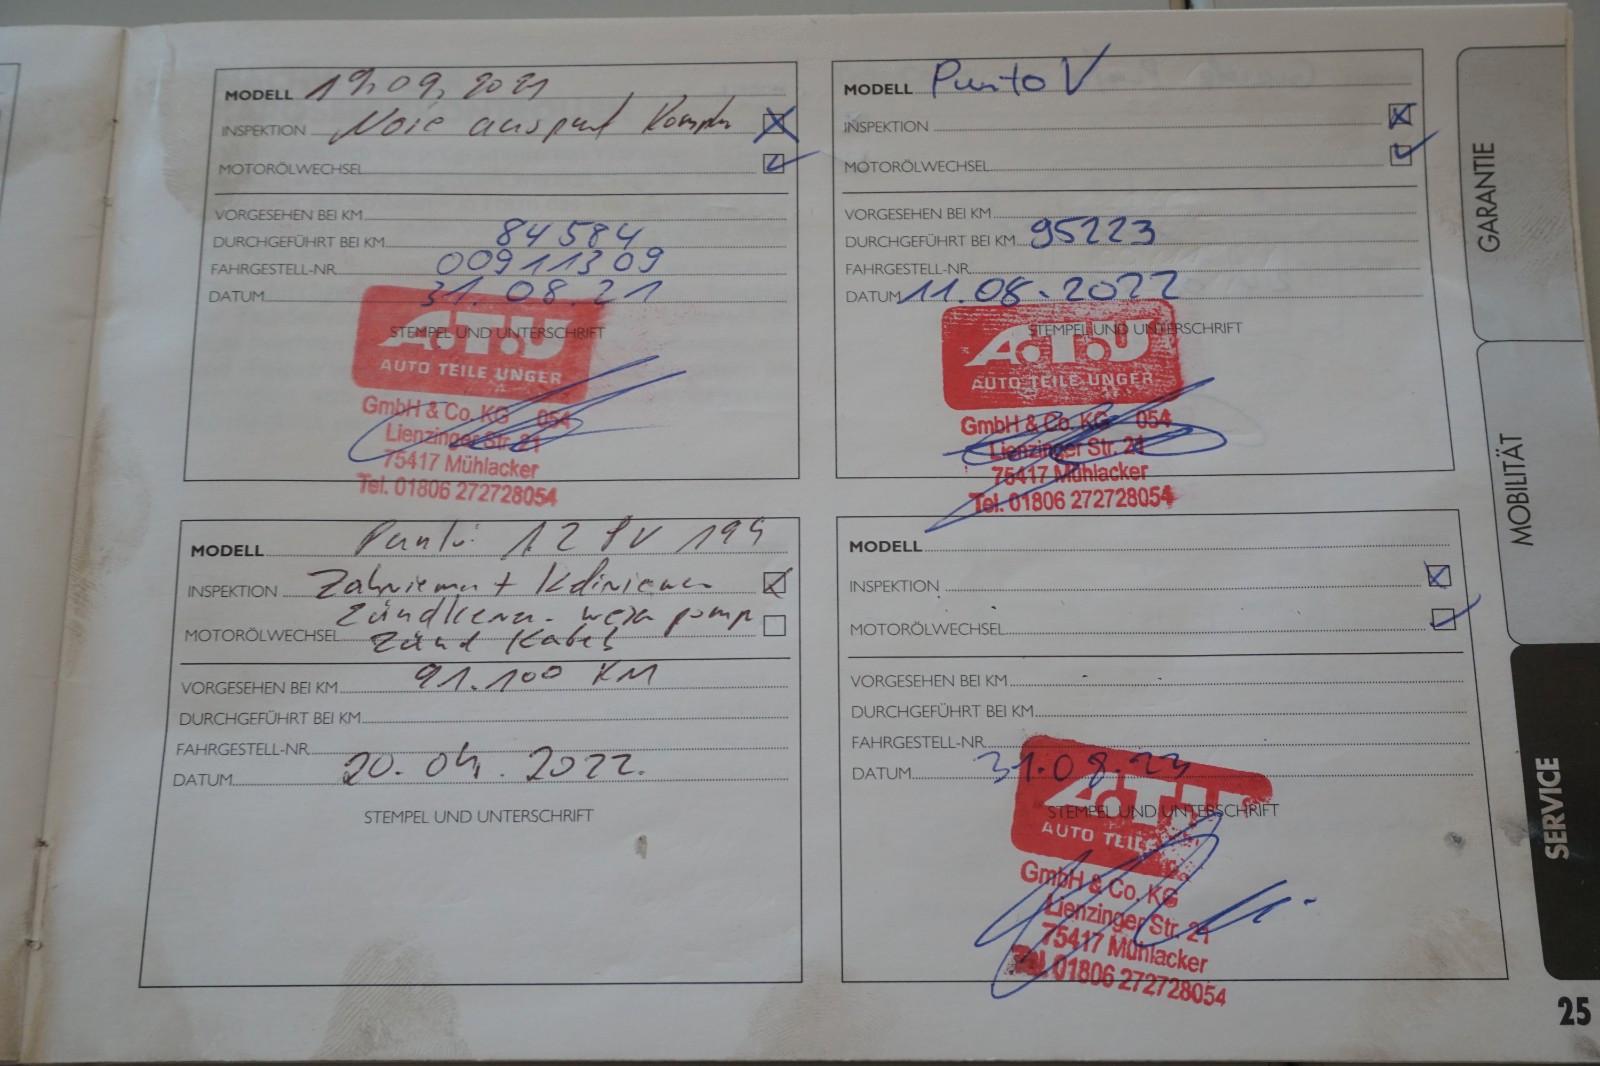 MODELL 19.09.2021
INSPEKTION Noie auspuf Kompln
MOTORÖLWECHSEL
VORGESEHEN BEI KM
DURCHGEFÜHRT BEI KM 84584
FAHRGESTELL-NR. 00911309
DATUM 31.08.21
STEMPEL UND UNTERSCHRIFT
A.T.U
AUTO TEILE UNGER
GmbH & Co. KG 054
Lienzinger Str. 21
75417 Mühlacker
Tel. 01806 272728054
MODELL Punto V
INSPEKTION
MOTORÖLWECHSEL
VORGESEHEN BEI KM
DURCHGEFÜHRT BEI KM 95223
FAHRGESTELL-NR.
DATUM 11.08.2022
STEMPEL UND UNTERSCHRIFT
A.T.U
AUTO TEILE UNGER
GmbH & Co. KG 054
Lienzinger Str. 21
75417 Mühlacker
Tel. 01806 272728054
MODELL Punto 12 8V 199
INSPEKTION Zahnriemen + Keilriemen
Zündkerzn. pomp
MOTORÖLWECHSEL Zünd Kabel
VORGESEHEN BEI KM 91.100 KM
DURCHGEFÜHRT BEI KM
FAHRGESTELL-NR.
DATUM 20.04.2022.
STEMPEL UND UNTERSCHRIFT
MODELL
INSPEKTION
MOTORÖLWECHSEL
VORGESEHEN BEI KM
DURCHGEFÜHRT BEI KM
FAHRGESTELL-NR.
DATUM 31.08.23
STEMPEL UND UNTERSCHRIFT
A.T.U
AUTO TEILE
GmbH & Co. KG
Lienzinger Str. 21
75417 Mühlacker
Tel. 01806 272728054
GARANTIE
MOBILITÄT
SERVICE
25